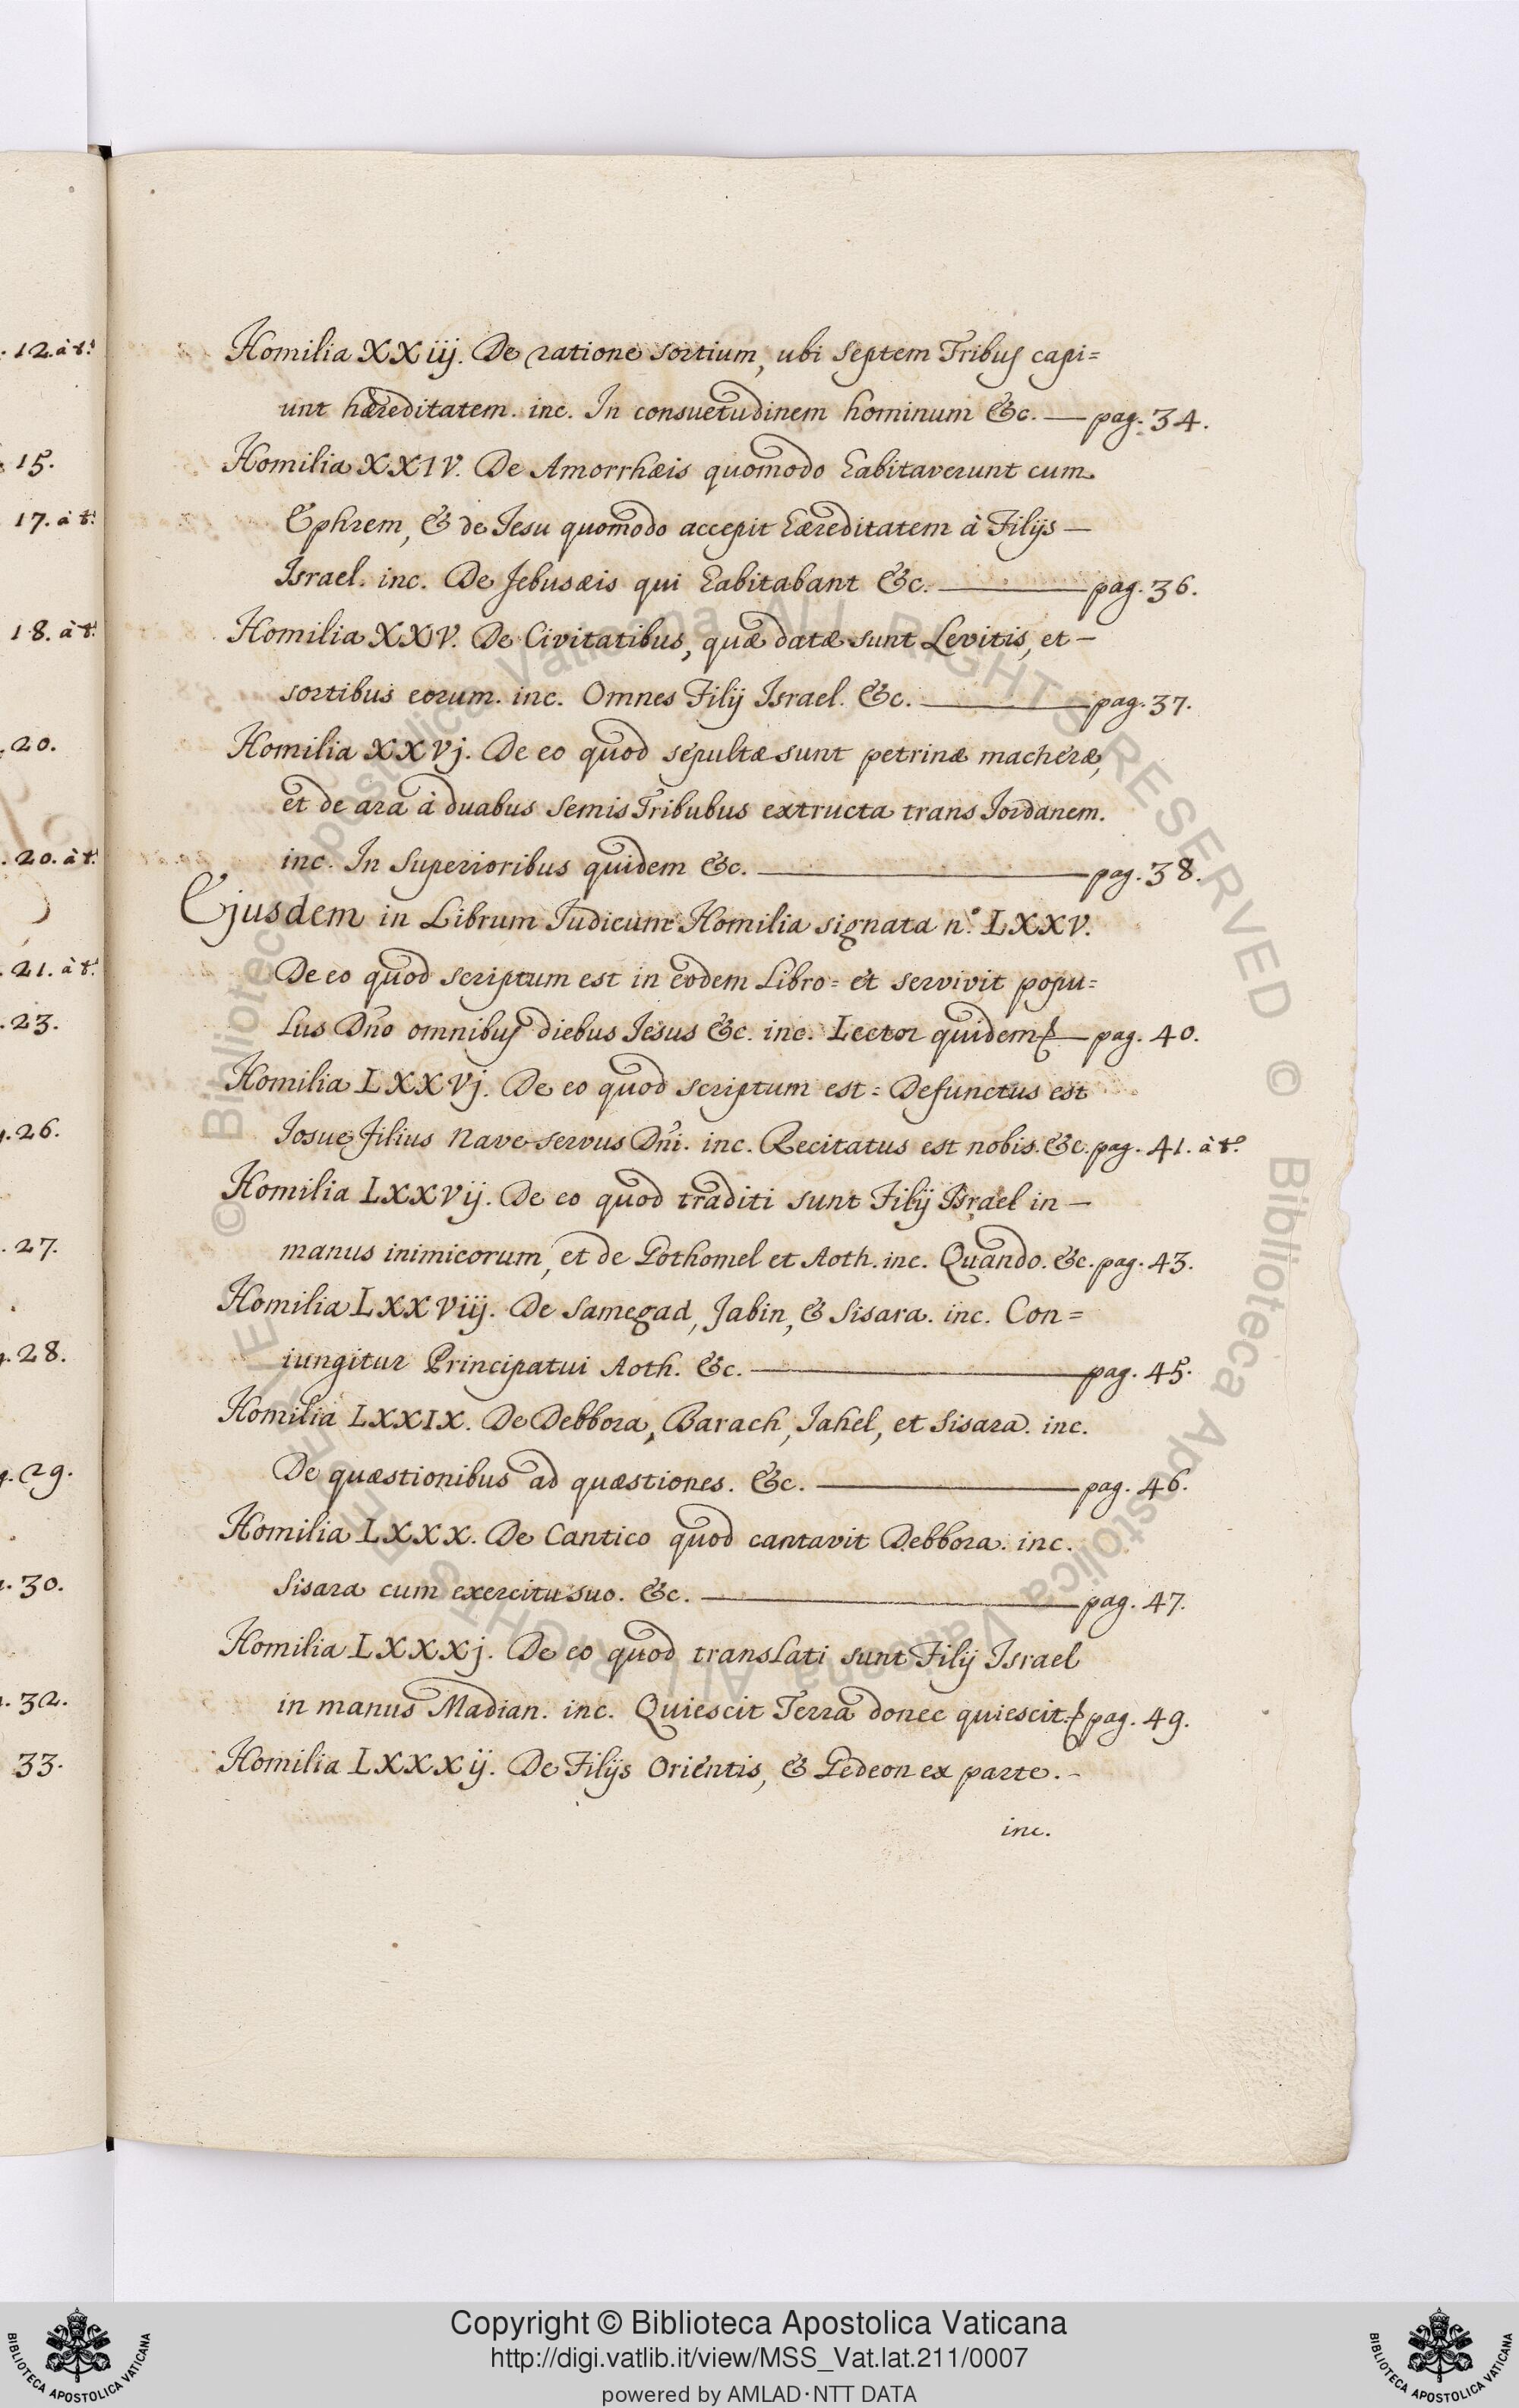 . 12. à t.º
15.
17. à t.º
18. à t.º
. 20.
. 20. à t.º
. 21. à t.º
. 23.
. 26.
. 27.
. 28.
. 29.
. 30.
. 32.
33.
Homilia XXiij. De ratione sortium, ubi septem Tribus capi=
unt hæreditatem. inc. In consuetudinem hominum &c. — pag. 34.
Homilia XXIV. De Amorrhæis quomodo habitaverunt cum
Ephrem, & de Iesu quomodo accepit hæreditatem à Filijs —
Israel. inc. De Jebusæis qui habitabant &c. — pag. 36.
Homilia XXV. De Civitatibus, quæ datæ sunt Levitis, et —
sortibus eorum. inc. Omnes Filij Israel. &c. — pag. 37.
Homilia XXVj. De eo quod sepultæ sunt petrinæ macheræ,
et de ara à duabus semis Tribubus extructa trans Iordanem.
inc. In Superioribus quidem &c. — pag. 38.
Ejusdem in Librum Iudicum Homilia signata n.º LXXV.
De eo quod scriptum est in eodem Libro = et servivit popu=
lus Dño omnibus diebus Iesus &c. inc. Lector quidem — pag. 40.
Homilia LXXVj. De eo quod scriptum est = Defunctus est
Iosue filius Nave servus Dñi. inc. Recitatus est nobis. &c. pag. 41. à t.º
Homilia LXXVij. De eo quod traditi sunt Filij Israel in —
manus inimicorum, et de Gothomel et Aoth. inc. Quando. &c. pag. 43.
Homilia LXXViij. De Samegad, Jabin, & Sisara. inc. Con=
iungitur Principatui Aoth. &c. — pag. 45.
Homilia LXXIX. De Debbora, Barach, Jahel, et Sisara. inc.
De quæstionibus ad quæstiones. &c. — pag. 46.
Homilia LXXX. De Cantico quod cantavit Debbora. inc.
Sisara cum exercitu suo. &c. — pag. 47.
Homilia LXXXj. De eo quod translati sunt Filij Israel
in manus Madian. inc. Quiescit Terra donec quiescit. pag. 49.
Homilia LXXXij. De Filijs Orientis, & Gedeon ex parte. -
inc.
© Biblioteca Apostolica Vaticana ALL RIGHTS RESERVED © Biblioteca Apostolica Vaticana ALL RIGHTS RESERVED
BIBLIOTECA APOSTOLICA VATICANA
Copyright © Biblioteca Apostolica Vaticana
http://digi.vatlib.it/view/MSS_Vat.lat.211/0007
powered by AMLAD·NTT DATA
BIBLIOTECA APOSTOLICA VATICANA